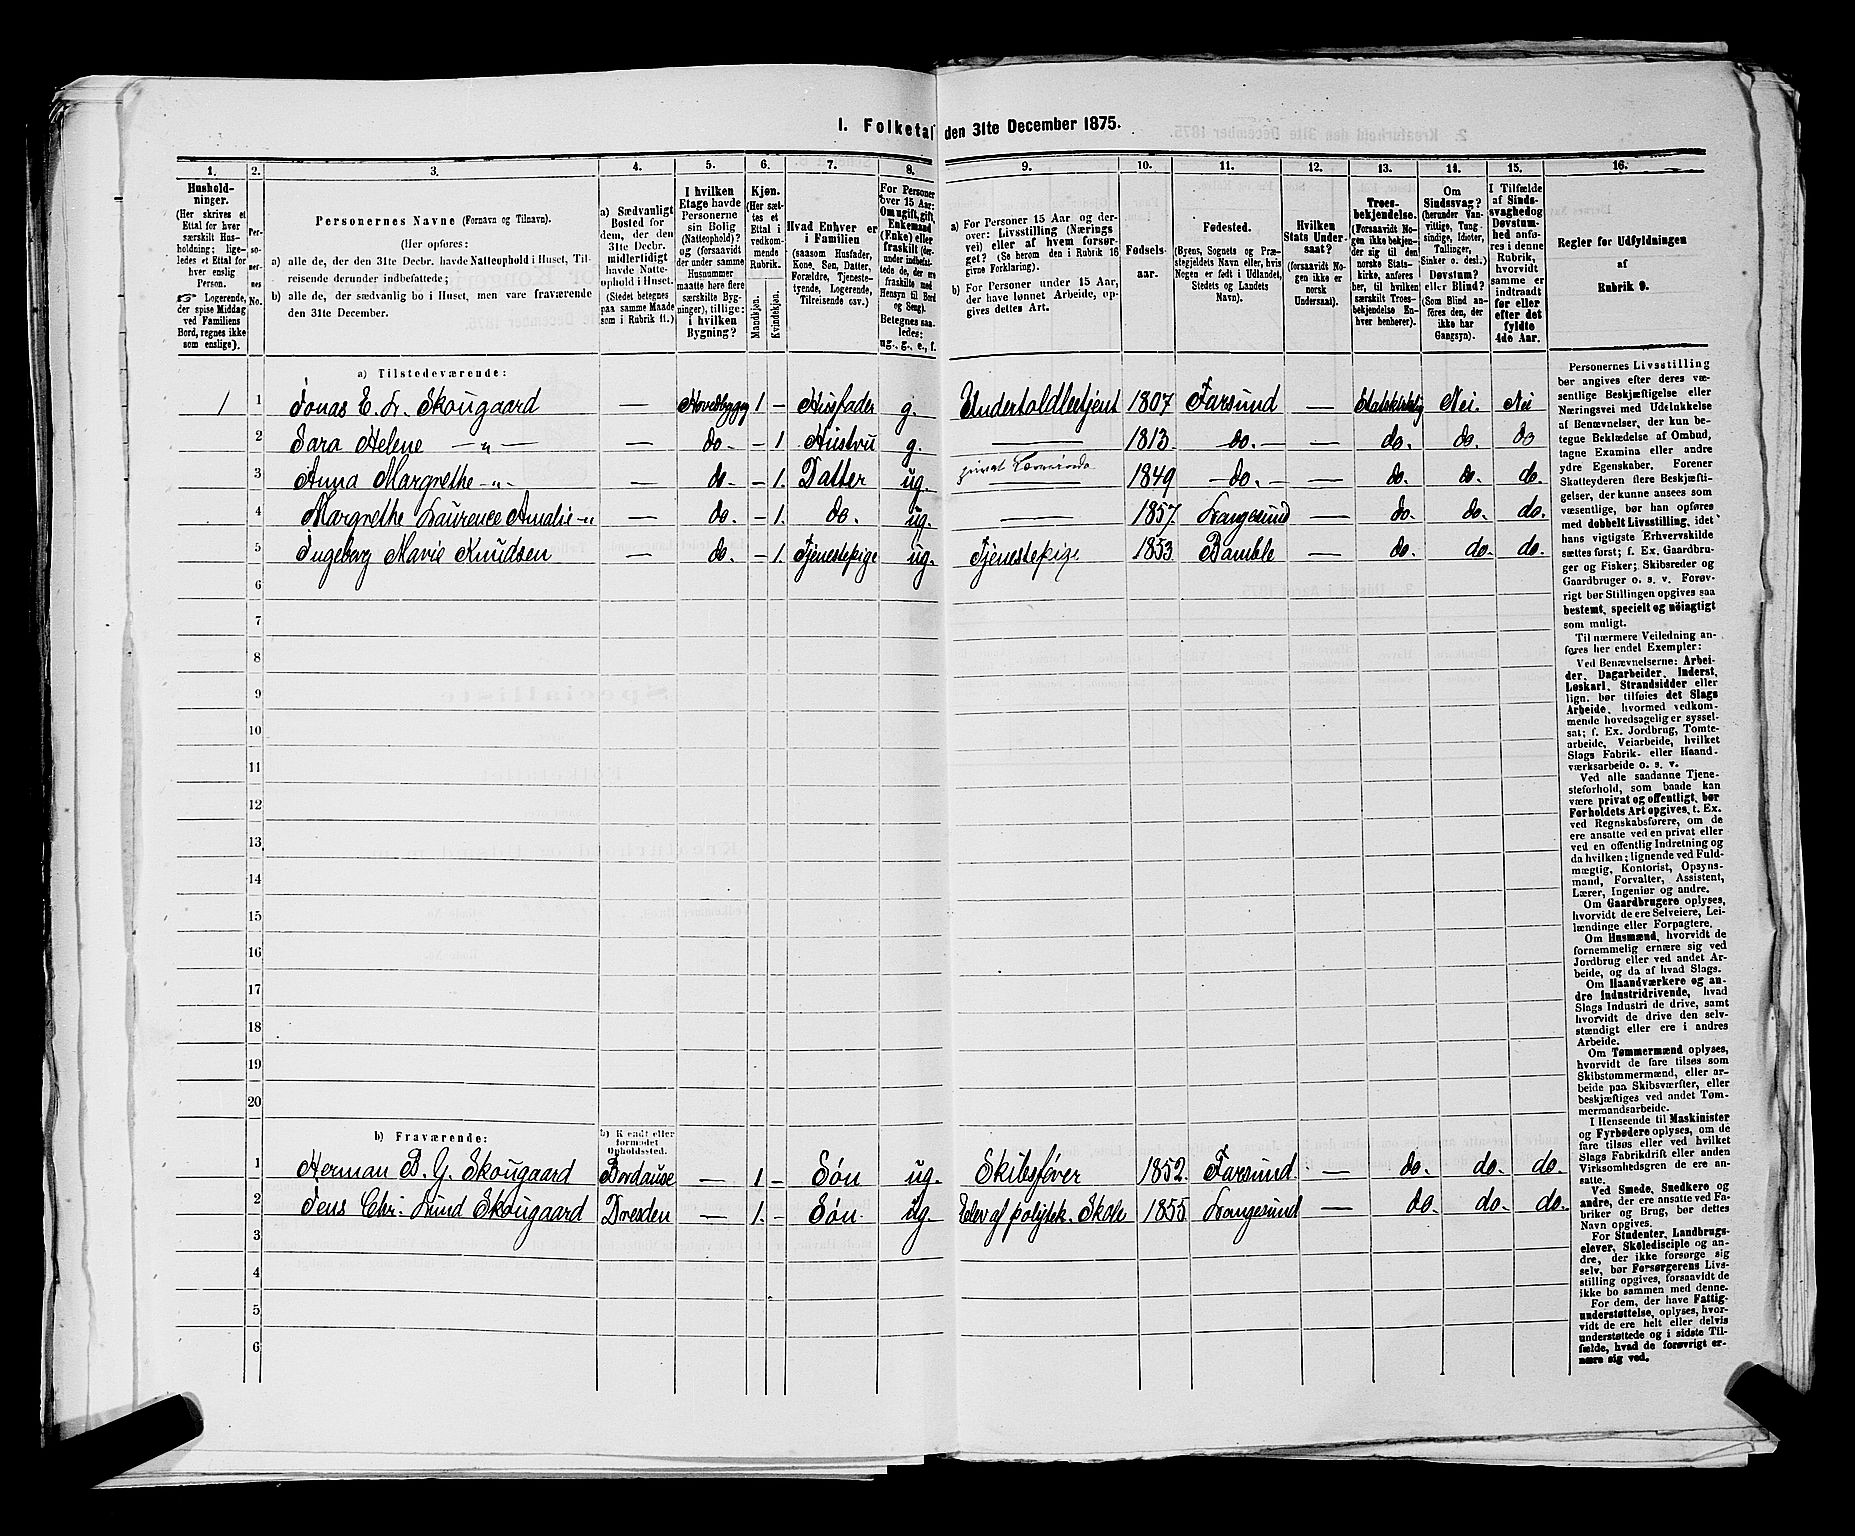 I. Folketal den 31te December 1875.
1. 2. 3. 4. 5. 6. 7. 8. 9. 10. 11. 12. 13. 14. 15. 16.
Hushold-
ninger.
(Her skrives et
Ettal for hver
særskilt Hus-
holdning; lige-
ledes et Ettal for
hver enslig
Person.
☞ Logerende,
der spise Middag
ved Familiens
Bord, regnes ikke
som enslige).
Per-
so-
ner-
nes
No.
Personernes Navne (Fornavn og Tilnavn).
(Her opføres:
a) alle de, der den 31te Decbr. havde Natteophold i Huset, Til-
reisende derunder indbefattede;
b) alle de, der sædvanlig bo i Huset, men vare fraværende
den 31te December.
a) Sædvanligt
Bosted for
dem, der den
31te Decbr.
midlertidigt
havde Natte-
ophold i Huset.
(Stedet betegnes
paa samme Maade
som i Rubrik 11.)
I hvilken
Etage havde
Personerne
sin Bolig
(Natteophold)?
og (forsaavidt
der under samme
Husnummer
maatte høre flere
særskilte Byg-
ninger), tillige:
i hvilken
Bygning?
Kjøn.
(Her sæt-
tes et
Ettal i
vedkom-
mende
Rubrik.
Mandkjøn.
Kvindekjøn.
Hvad Enhver er
i Familien
(saasom Husfader,
Kone, Søn, Datter,
Forældre, Tjeneste-
tyende, Logerende,
Tilreisende osv.)
For Personer
over 15 Aar:
Om ugift, gift,
Enkemand
(Enke) eller
fraskilt (der-
under indbefat-
tede de, der ere
fraskilte med
Hensyn til Bord
og Seng).
Betegnes saa-
ledes:
ug., g., e., f.
a) For Personer 15 Aar og der-
over: Livsstilling (Nærings
vei) eller af hvem forsør-
get? (Se herom den i Rubrik 16
givne Forklaring).
b) For Personer under 15 Aar,
der have lønnet Arbeide, op-
gives dettes Art.
Fødsels-
aar.
Fødested.
(Byens, Sognets og Præ-
stegjeldets Navn eller, hvis
Nogen er født i Udlandet,
Stedets og Landets
Navn).
Hvilken
Stats Under-
saat?
(forsaavidt No-
gen ikke er
norsk
Undersaat).
Troes-
bekjendelse.
(Forsaavidt No-
gen ikke bekjen-
der sig til den
norske Stats-
kirke, anføres
her, til hvilken
særskilt Troes-
bekjendelse En-
hver henhører).
Om
Sindssvag?
(herunder Van-
vittige, Tung-
sindige, Idioter,
Tullinger,
Sinker o. desl.)
Døvstum?
eller Blind?
(Som Blind an-
føres den, der
ikke har
Gangsyn).
I Tilfælde
af Sinds-
svaghed og
Døvstum-
hed anfø-
res i denne
Rubrik,
hvorvidt
samme er
indtraadt
før eller
efter det
fyldte
4de Aar.
Regler for Udfyldningen
af
Rubrik 9.
a) Tilstedeværende:
1 1 Jonas E. L. Skougaard — Hovedbygg 1 – Husfader g. Undertoldbetjent 1807 Farsund — Statskirkelig Nei. Nei
2 Sara Helene —„— — do. – 1 Hustru g. — 1813 do. — do. do. do
3 Anna Margrethe -„- — do – 1. Datter ug. privat Lærerinde 1849 do. — do. do. do.
4 Margrethe Laurence Amalie -„ — do. – 1. do. ug. — 1857. Langesund — do. do. do.
5 Ingeborg Marie Knudsen — do. – 1. Tjenestepige ug. Tjenestepige 1853 Bamble — do. do. do.
6
7
8
9
10
11
12
13
14
15
16
17
18
19
20
b) Fraværende:
b) Kjendt eller
formodet
Opholdssted.
1 Herman B. G. Skougaard Bordaux — 1 – Søn ug. Skibsfører 1852. Farsund — do. do. do.
2 Jens Chr. Lund Skougaard Dresden — 1. – Søn ug. Elev af polytek. Skole 1855 Langesund — do. do. do.
3
4
5
6
Personernes Livsstilling
bør angives efter deres væ-
sentlige Beskjæftigelse eller
Næringsvei med Udelukkelse
af Benævnelser, der kun be-
tegne Beklædelse af Ombud,
tagne Examina eller andre
ydre Egenskaber. Forener
Skatteyderen flere Beskjæfti-
gelser, der kunne ansees som
væsentlige, bør han opføres
med dobbelt Livsstilling, idet
hans vigtigste Erhvervskilde
sættes først; f. Ex. Gaardbru-
ger og Fisker; Skibsreder og
Gaardbruger o. s. v. Forøv-
rigt bør Stillingen opgives saa
bestemt, specielt og nøiagtigt
som muligt.
Til nærmere Veiledning an-
føres her endel Exempler:
Ved Benævnelserne: Arbei-
der, Dagarbeider, Inderst,
Løskarl, Strandsidder eller
lign. bør tilføies det Slags
Arbeide, hvormed vedkom-
mende hovedsagelig er syssel-
sat; f. Ex. Jordbrug, Tomte-
arbeide, Veiarbeide, hvilket
Slags Fabrik- eller Haand-
værksarbeide o. s. v.
Ved alle saadanne Tjene-
steforhold, som baade kan
være privat og offentligt, bør
Forholdets Art opgives, t. Ex.
ved Regnskabsførere, om de
ere ansatte ved en privat eller
ved en offentlig Indretning og
da hvilken; lignende ved Fuld-
mægtig, Kontorist, Opsyns-
mand, Forvalter, Assistent,
Lærer, Ingeniør og andre.
Om Gaardbrugere oplyses,
hvorvidt de ere Selveiere, Lei-
lændinge eller Forpagtere.
Om Husmænd, hvorvidt de
fornemmelig ernære sig ved
Jordbrug eller ved andet Ar-
beide, og da af hvad Slags.
Om Haandværkere og an-
dre Industridrivende, hvad
Slags Industri de drive, samt
hvorvidt de drive den selv-
stændigt eller ere i andres
Arbeide.
Om Tømmermænd oplyses,
hvorvidt de fare tilsøs som
Skibstømmermænd, eller ar-
beide paa Skibsværfter, eller
beskjæftiges ved andet Tøm-
mermandsarbeide.
I Henseende til Maskinister
og Fyrbødere oplyses, om de
fare tilsøs eller ved hvilket
Slags Fabrikdrift eller anden
Virksomhedsgren de ere an-
satte.
Ved Smede, Snedkere og
andre, der ere ansatte ved Fa-
briker og Brug, bør dettes
Navn opgives.
For Studenter, Landbrugs-
elever, Skoledisciple og an-
dre, der ikke forsørge sig
selv, bør Forsørgerens Livs-
stilling opgives, forsaavidt de
ikke bo sammen med denne.
For dem, der have Fattig-
understøttelse, oplyses, hvor-
vidt de ere helt eller delvis
understøttede og i sidste Til-
fælde, hvad de forøvrigt er-
nære sig ved.